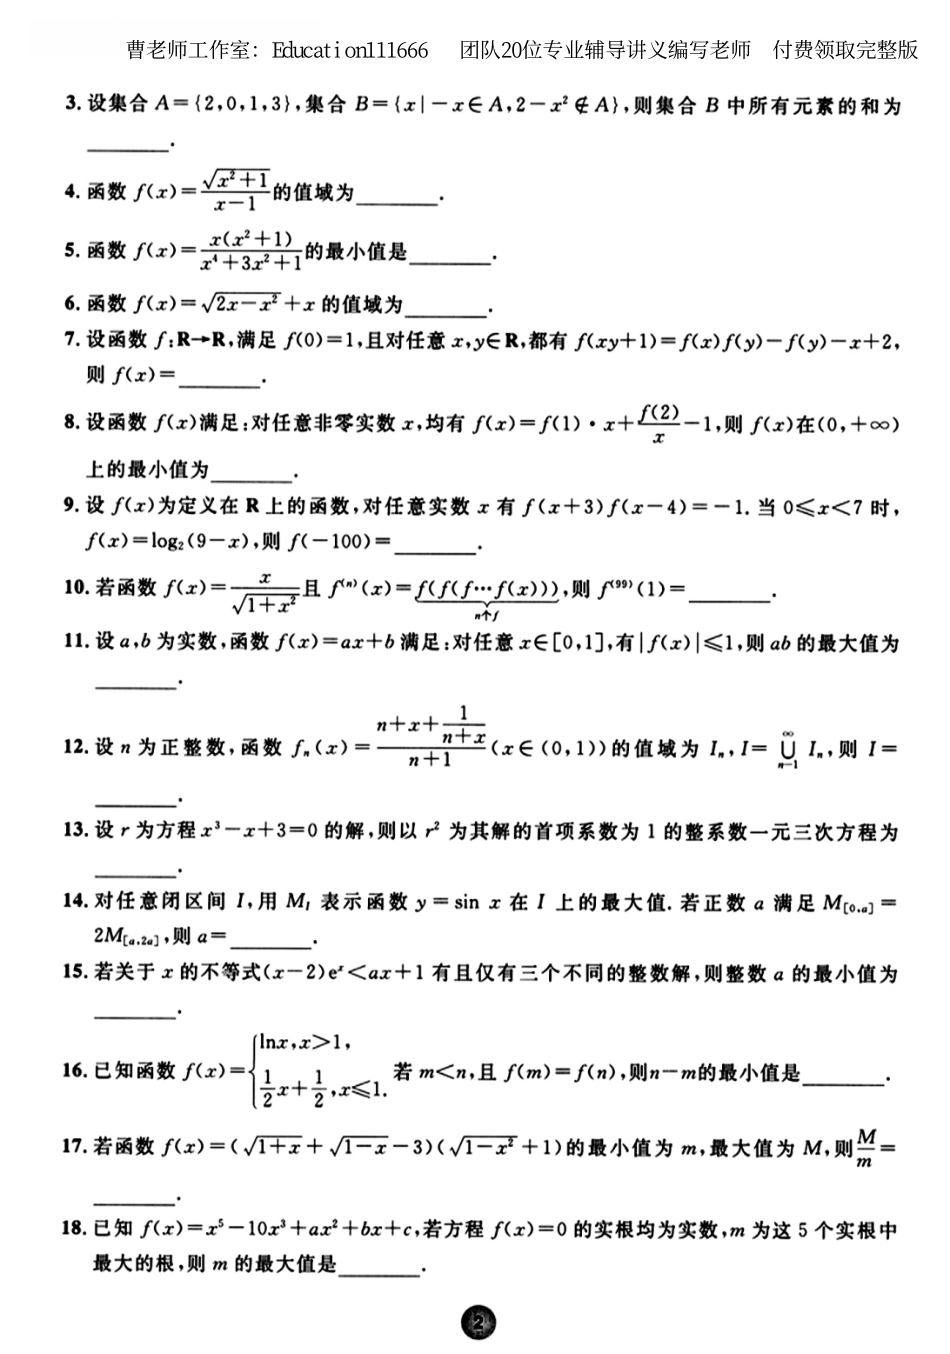 曹老师工作室：Education111666 团队20位专业辅导讲义编写老师 付费领取完整版
3. 设集合 A＝{2,0,1,3},集合 B＝{x|－x∈A,2－x²∉A},则集合 B 中所有元素的和为
______.
4. 函数 f(x)＝√(x²＋1)/(x－1) 的值域为______.
5. 函数 f(x)＝x(x²＋1)/(x⁴＋3x²＋1) 的最小值是______.
6. 函数 f(x)＝√(2x－x²)＋x 的值域为______.
7. 设函数 f:R→R,满足 f(0)＝1,且对任意 x,y∈R,都有 f(xy＋1)＝f(x)f(y)－f(y)－x＋2,
则 f(x)＝______.
8. 设函数 f(x)满足:对任意非零实数 x,均有 f(x)＝f(1)·x＋f(2)/x－1,则 f(x)在(0,＋∞)
上的最小值为______.
9. 设 f(x)为定义在 R 上的函数,对任意实数 x 有 f(x＋3)f(x－4)＝－1. 当 0≤x＜7 时,
f(x)＝log₂(9－x),则 f(－100)＝______.
10. 若函数 f(x)＝x/√(1＋x²) 且 f⁽ⁿ⁾(x)＝f(f(f…f(x))),则 f⁽⁹⁹⁾(1)＝______.
n个f
11. 设 a,b 为实数,函数 f(x)＝ax＋b 满足:对任意 x∈[0,1],有|f(x)|≤1,则 ab 的最大值为
______.
12. 设 n 为正整数,函数 fₙ(x)＝(n＋x＋1/(n＋x))/(n＋1) (x∈(0,1))的值域为 Iₙ,I＝∞⋃n－1 Iₙ,则 I＝
______.
13. 设 r 为方程 x³－x＋3＝0 的解,则以 r² 为其解的首项系数为 1 的整系数一元三次方程为
______.
14. 对任意闭区间 I,用 M_I 表示函数 y＝sin x 在 I 上的最大值. 若正数 a 满足 M[0,a]＝
2M[a,2a],则 a＝______.
15. 若关于 x 的不等式(x－2)eˣ＜ax＋1 有且仅有三个不同的整数解,则整数 a 的最小值为
______.
16. 已知函数 f(x)＝{lnx,x＞1, 1/2x＋1/2,x≤1. 若 m＜n,且 f(m)＝f(n),则n－m的最小值是______.
17. 若函数 f(x)＝(√(1＋x)＋√(1－x)－3)(√(1－x²)＋1)的最小值为 m,最大值为 M,则M/m＝
______.
18. 已知 f(x)＝x⁵－10x³＋ax²＋bx＋c,若方程 f(x)＝0 的实根均为实数,m 为这 5 个实根中
最大的根,则 m 的最大值是______.
2